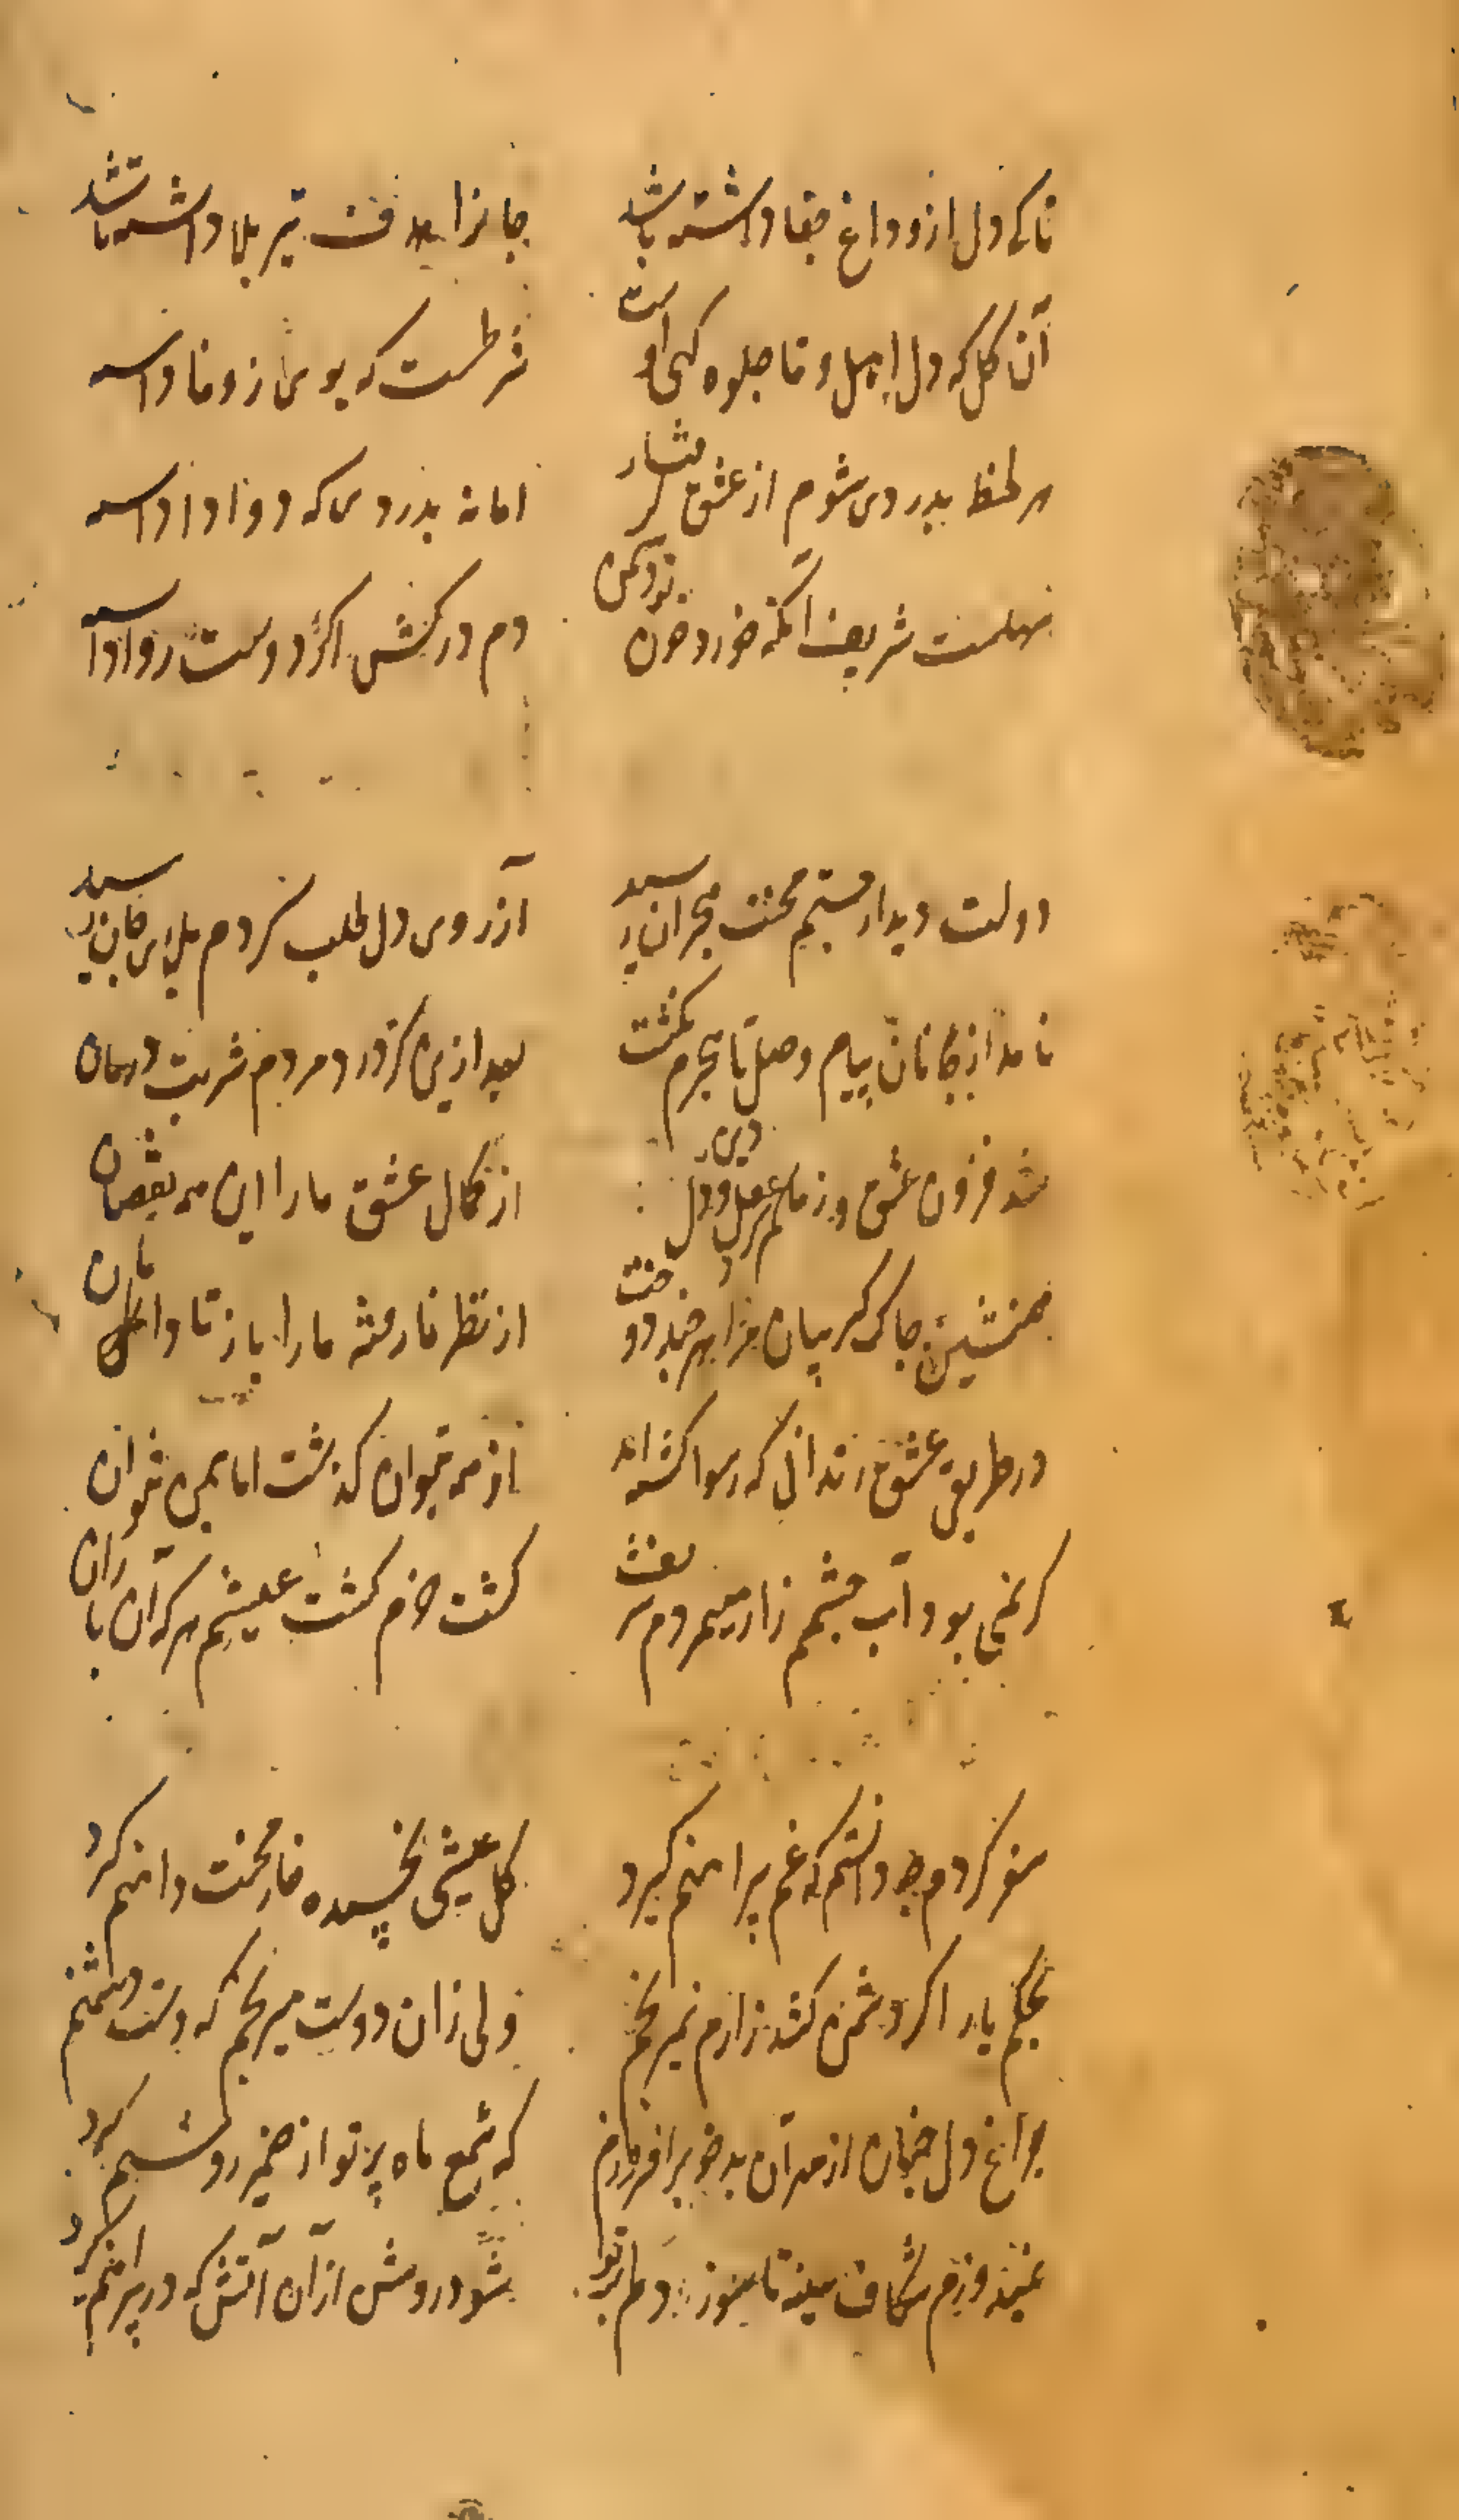 تا کی دل ازو داغ جفا داشته باشد
جانرا هدف تیر بلا داشته باشد
آن گل که دل اهل وفا جلوه گه اوست
شرطست که بوی ز وفا داشته
هر لحظه بدردی شوم از عشق گرفتار
اما نه بدردی که دوا داشته
سهلست شریف آنکه خورد خون تو دشمن
دم در کش اگر دوست روا داشته
دولت دیدار جستم محنت هجران رسید
آرزوی دل طلب کردم بلای جان رسید
نامد از جانان پیام وصل تا بجرم نکشت
بعد ازین کز درد مردم شربت درمان
شد فزون عشق و زما عقل و دل و دین
از کمال عشق ما را این همه نقصان
همنشین چاک گریبان مرا هر چند دوخت
از نظر نارفته ما را باز تا دامان
در طریق عشق رندانی که رسوا گشته اند
از همه بتوان گذشت اما بمن نتوان
گر نمی بود آب چشمم زار میمردم
کشت خرم گشت عیشم هر که آن باران
سفر کردم چه دانستم که غم پیرامنم گیرد
گل عیشی نچیده خار محنت دامنم گیرد
بحکم یار اگر دشمن کشد زارم نمیرنجم
ولی زان دوست میرنجم که دست دشمنم
چراغ دل چنان از مهر آن بدخو برافروزم
که شمع ماه پرتو از ضمیر روشنم گیرد
نمیدوزم شکاف سینه تا سوز دلم
شود روشن از آن آتش که در پیراهنم گیرد